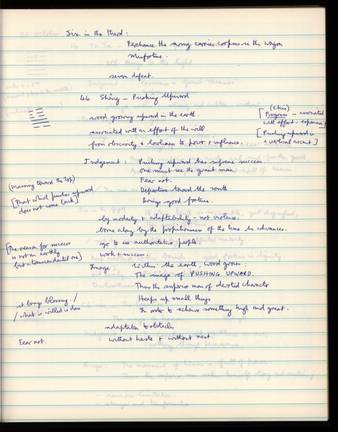 Six in the third:
Perchance the army carries corpses in the wagon
Misfortune.
even defeat.
46 Sheng - Pushing Upward
(Chin)
[Progress - associated
with effort - expansion]
wood growing upward in the earth.
associated with an effort of the will
[Pushing upward is
a vertical ascent]
from obscurity & lowliness to power & influence.
Judgement: Pushing upward has supreme success
One must see the great man.
Fear not.
(Moving toward the top)
Departure toward the south
[That which pushes upward
does not come back]
Brings good fortune.
by modesty & adaptability - not violence.
borne along by the propitiousness of the time he advances.
[The reason for success
is not an earthly
but a transcendental one]
go to see authoritative people.
work = success.
Image: Within the earth, wood grows.
The image of PUSHING UPWARD.
Thus the superior man of devoted character
Heaps up small things
In order to achieve something high and great.
what is willed is done
adaptable to obstacles
Fear not. without haste & without rest.